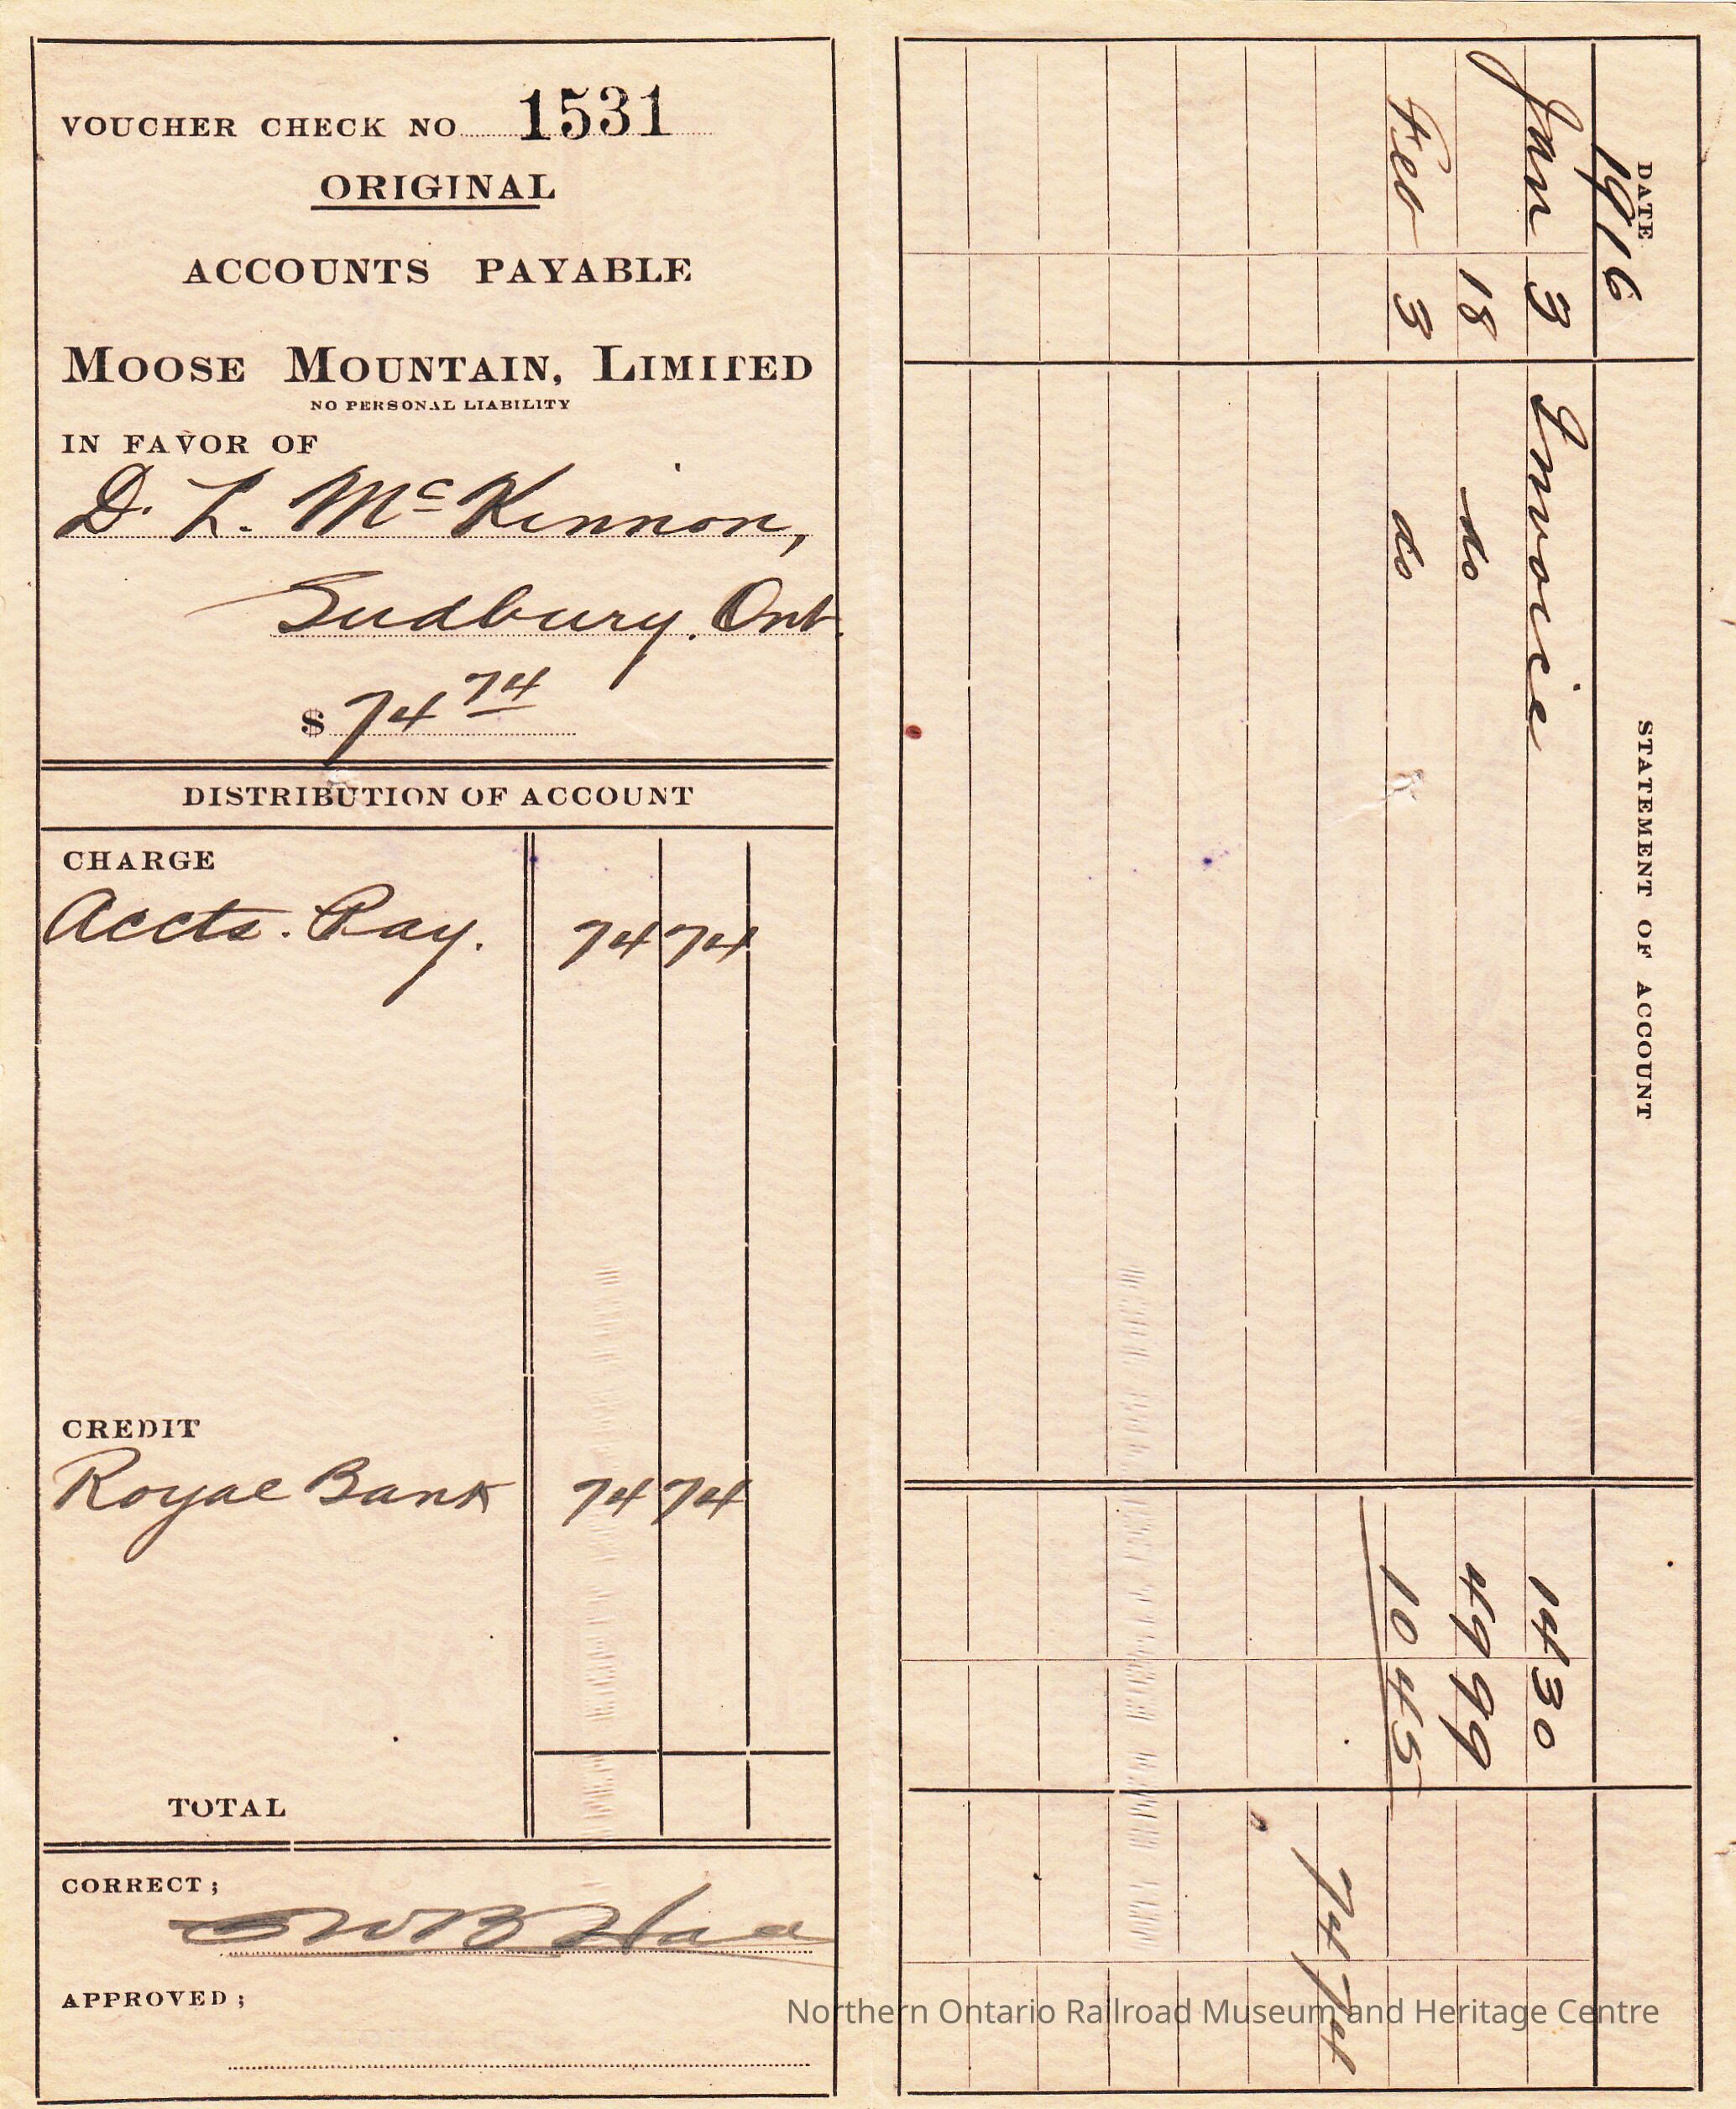 VOUCHER CHECK NO 1531
ORIGINAL
ACCOUNTS PAYABLE
MOOSE MOUNTAIN, LIMITED
NO PERSONAL LIABILITY
IN FAVOR OF
D. L. McKinnon,
Sudbury. Ont.
$ 74 74
DISTRIBUTION OF ACCOUNT
CHARGE
Accts. Pay. 74 74
CREDIT
Royal Bank 74 74
TOTAL
CORRECT;
APPROVED;
DATE STATEMENT OF ACCOUNT
1916
Jan 3 Invoice 14 30
18 do 49 99
Feb 3 do 10 45
74 74
Northern Ontario Railroad Museum and Heritage Centre